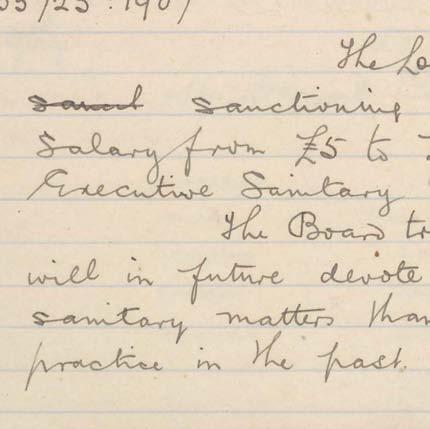 The Lo
sanctioning
Salary from £5 to
Executive Sanitary
The Board tr
will in future devote
sanitary matters than
practice in the past.